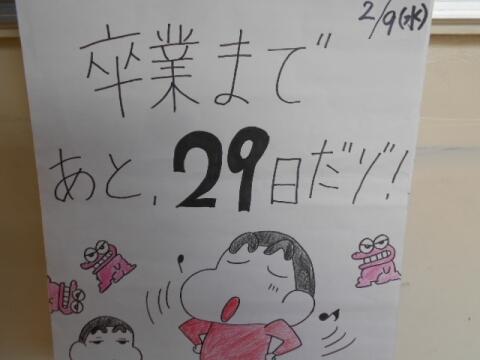 2/9(水)
卒業まで
あと、29日だゾ!